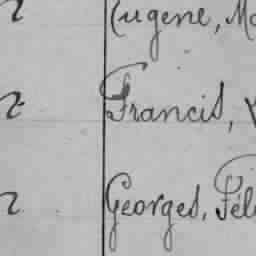 2 Eugene, Ma
2 Francis, V
2 Georges, Féli